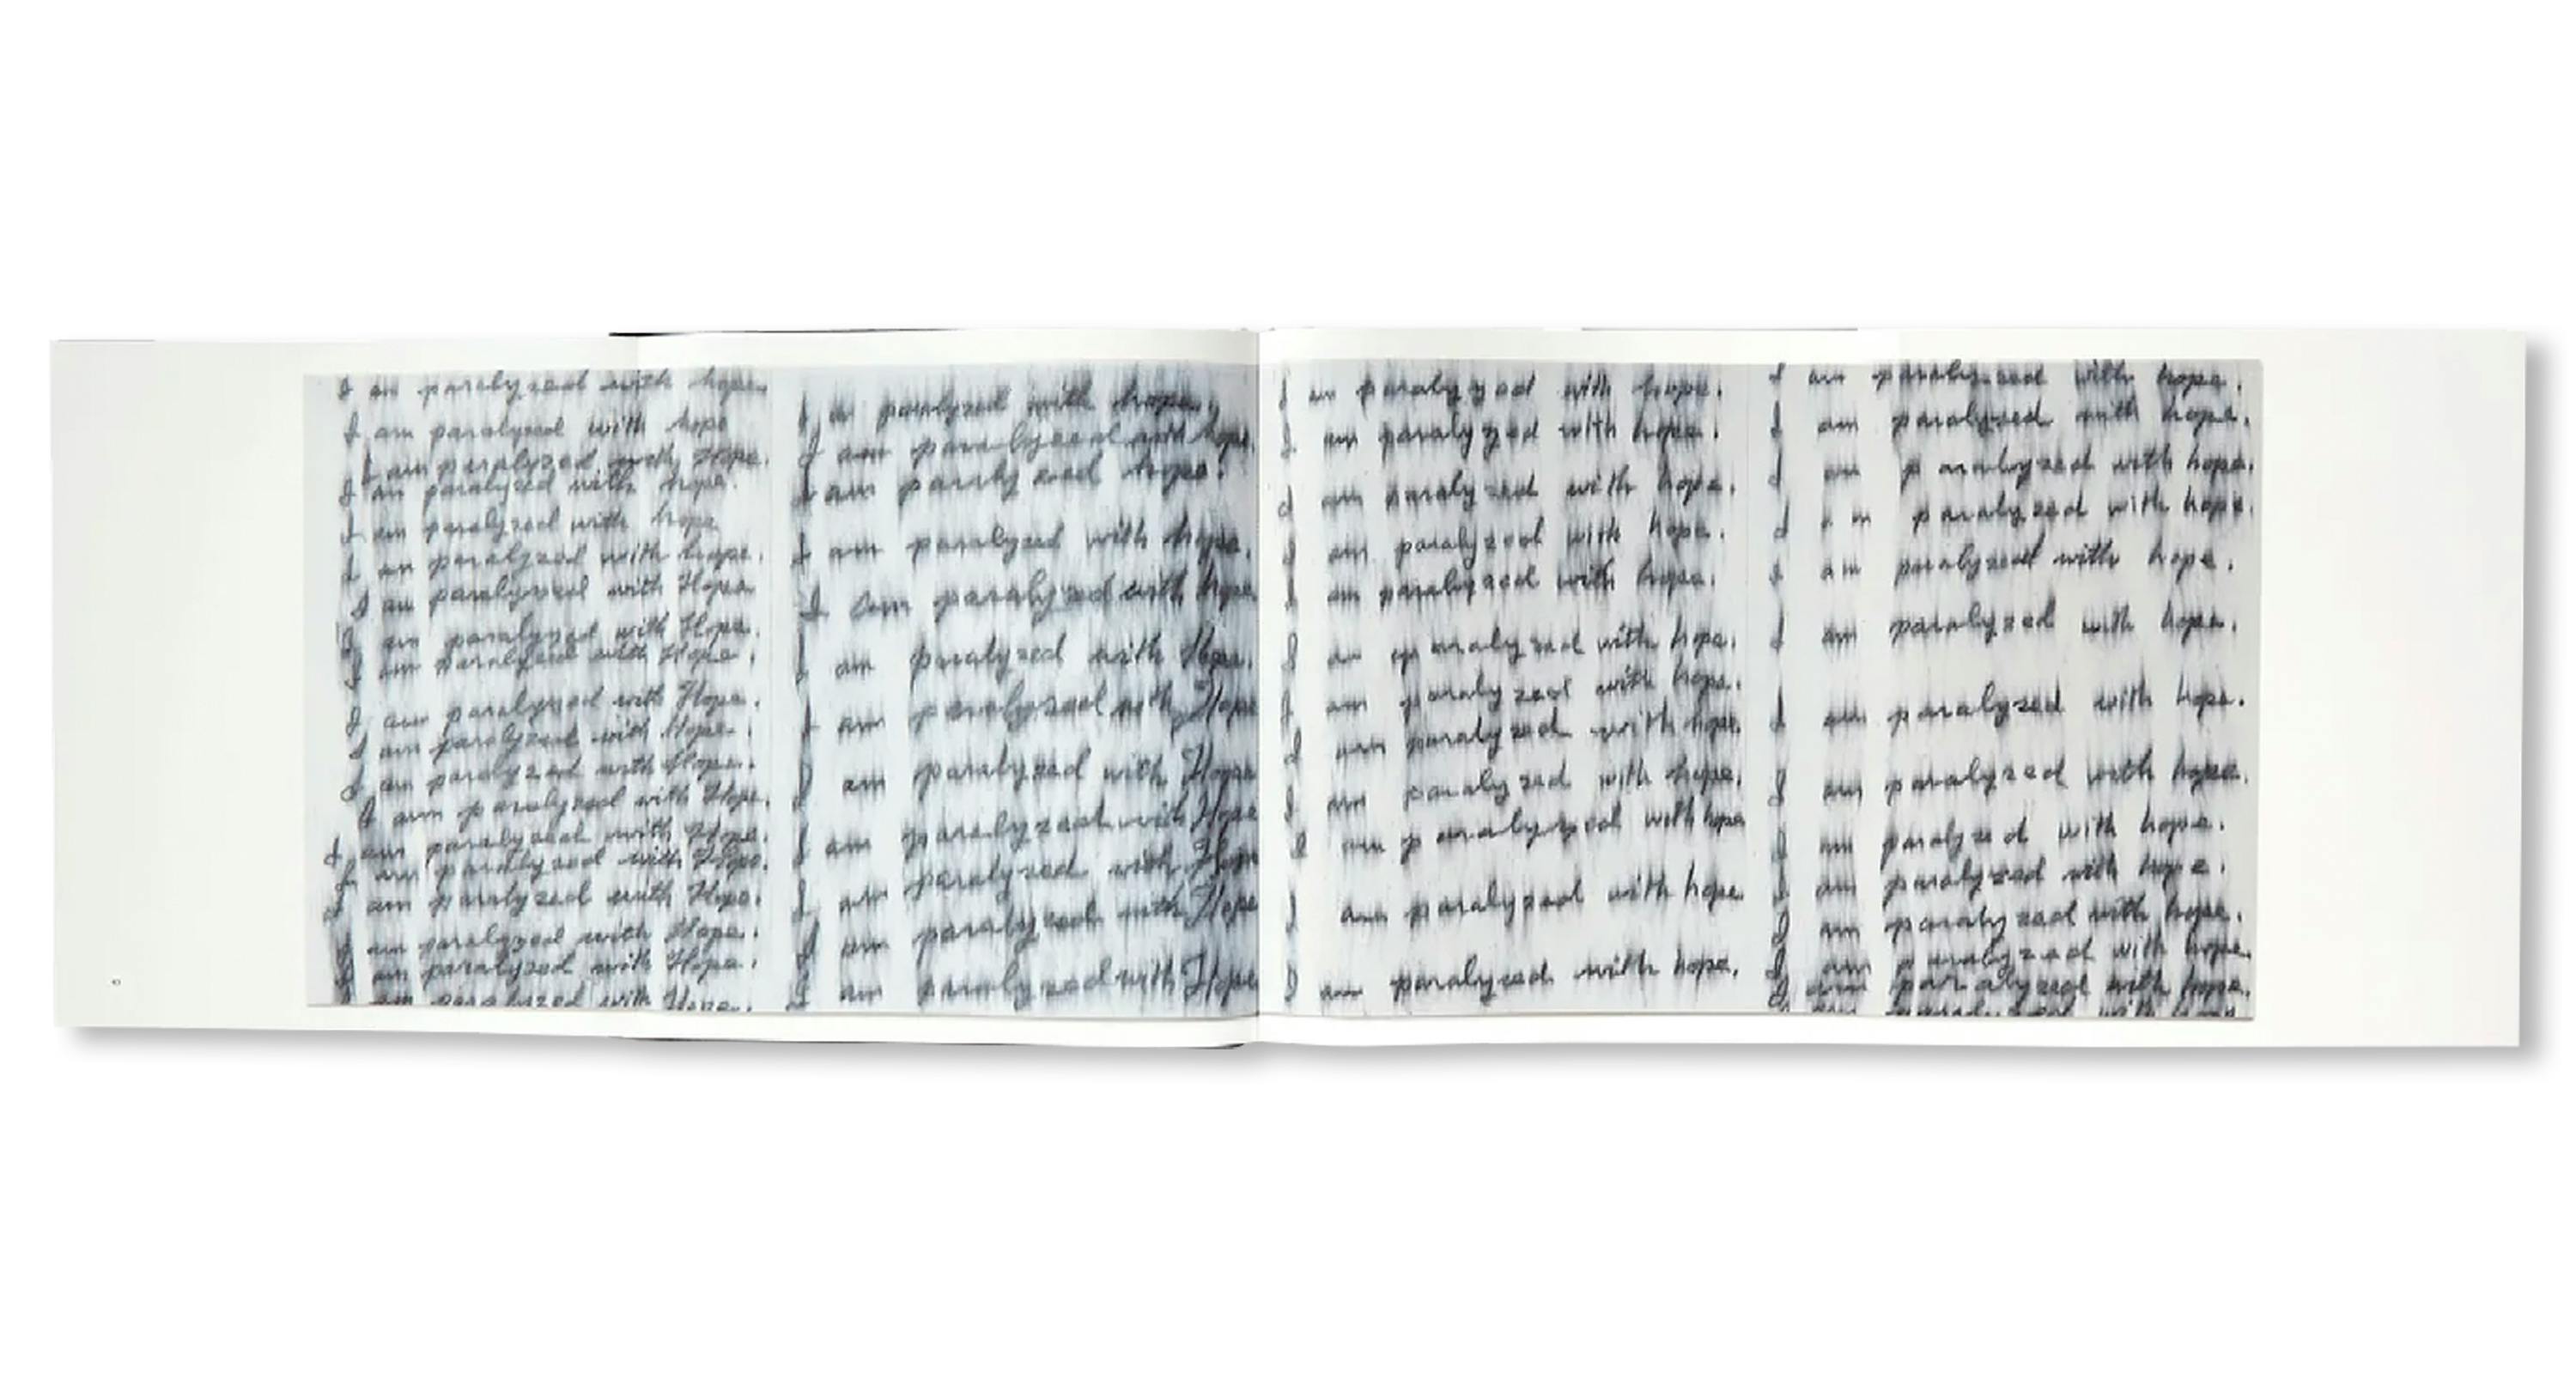 I am paralyzed with hope.
I am paralyzed with hope
I am paralyzed with Hope.
I am paralyzed with hope.
I am paralyzed with hope
I am paralyzed with hope.
I am paralyzed with Hope
I am paralyzed with Hope.
I am paralyzed with Hope.
I am paralyzed with Hope.
I am paralyzed with Hope.
I am paralyzed with Hope.
I am paralyzed with Hope.
I am paralyzed with Hope.
I am paralyzed with Hope.
I am paralyzed with Hope.
I am paralyzed with Hope.
I am paralyzed with Hope.
I am paralyzed with Hope.
I am paralyzed with hope.
I am paralyzed with hope.
I am paralyzed hope.
I am paralyzed with hope.
I am paralyzed with hope
I am paralyzed with Hope.
I am paralyzed with Hope
I am paralyzed with Hope
I am paralyzed with Hope
I am paralyzed with Hope
I am paralyzed with Hope
I am paralyzed with Hope
I am paralyzed with hope.
I am paralyzed with hope.
I am paralyzed with hope.
I am paralyzed with hope.
I am paralyzed with hope.
I am paralyzed with hope.
I am paralyzed with hope.
I am paralyzed with hope.
I am paralyzed with hope.
I am paralyzed with hope
I am paralyzed with hope
I am paralyzed with hope.
I am paralyzed with hope.
I am paralyzed with hope.
I am paralyzed with hope.
I am paralyzed with hope.
I am paralyzed with hope.
I am paralyzed with hope.
I am paralyzed with hope.
I am paralyzed with hope.
I am paralyzed with hope.
I am paralyzed with hope.
I am paralyzed with hope.
I am paralyzed with hope.
I am paralyzed with hope.
am paralyzed with hope